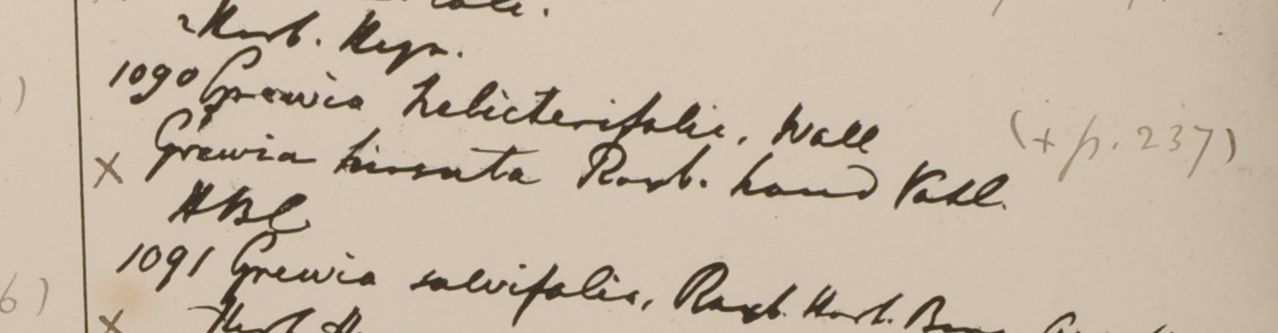 Herb. Heyn.
1090 Grewia helicterifolia, Wall (+ p. 237)
x Grewia hirsuta Roxb. haud Vahl.
HBC
1091 Grewia salvifolia, Roxb. Hort. Beng.
x Herb.